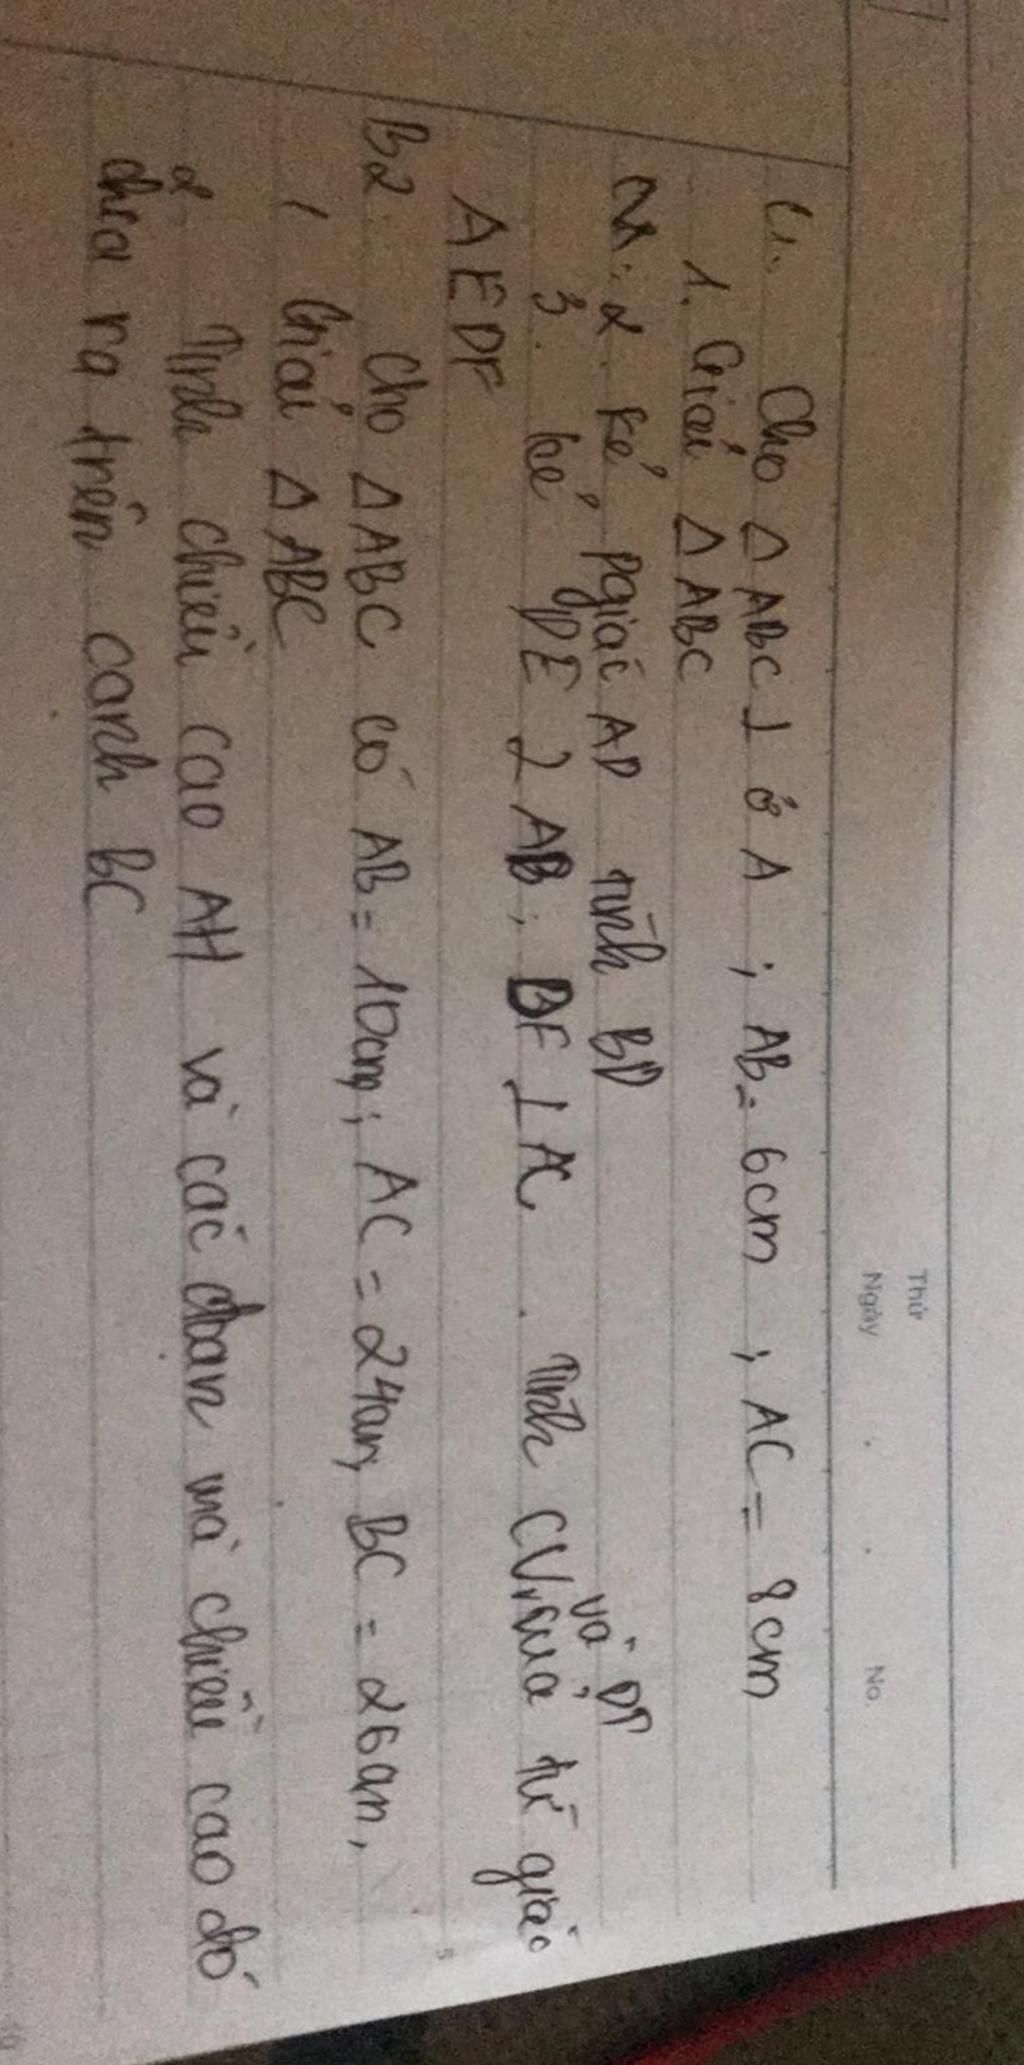 Thứ
Ngày No
Cho △ ABC ⊥ ở A ; AB = 6cm ; AC = 8cm
1. Giải △ ABC
2. Kẻ pgiác AD tính BD
và DT
3. kẻ DE ⊥ AB ; DF ⊥ AC. Tính CV của tứ giác
AEDF
B2. Cho △ ABC có AB = 10cm ; AC = 24cm, BC = 26cm,
1 Giải △ ABC
2. Tính chiều cao AH và các đoạn mà chiều cao đó
chia ra trên cạnh BC